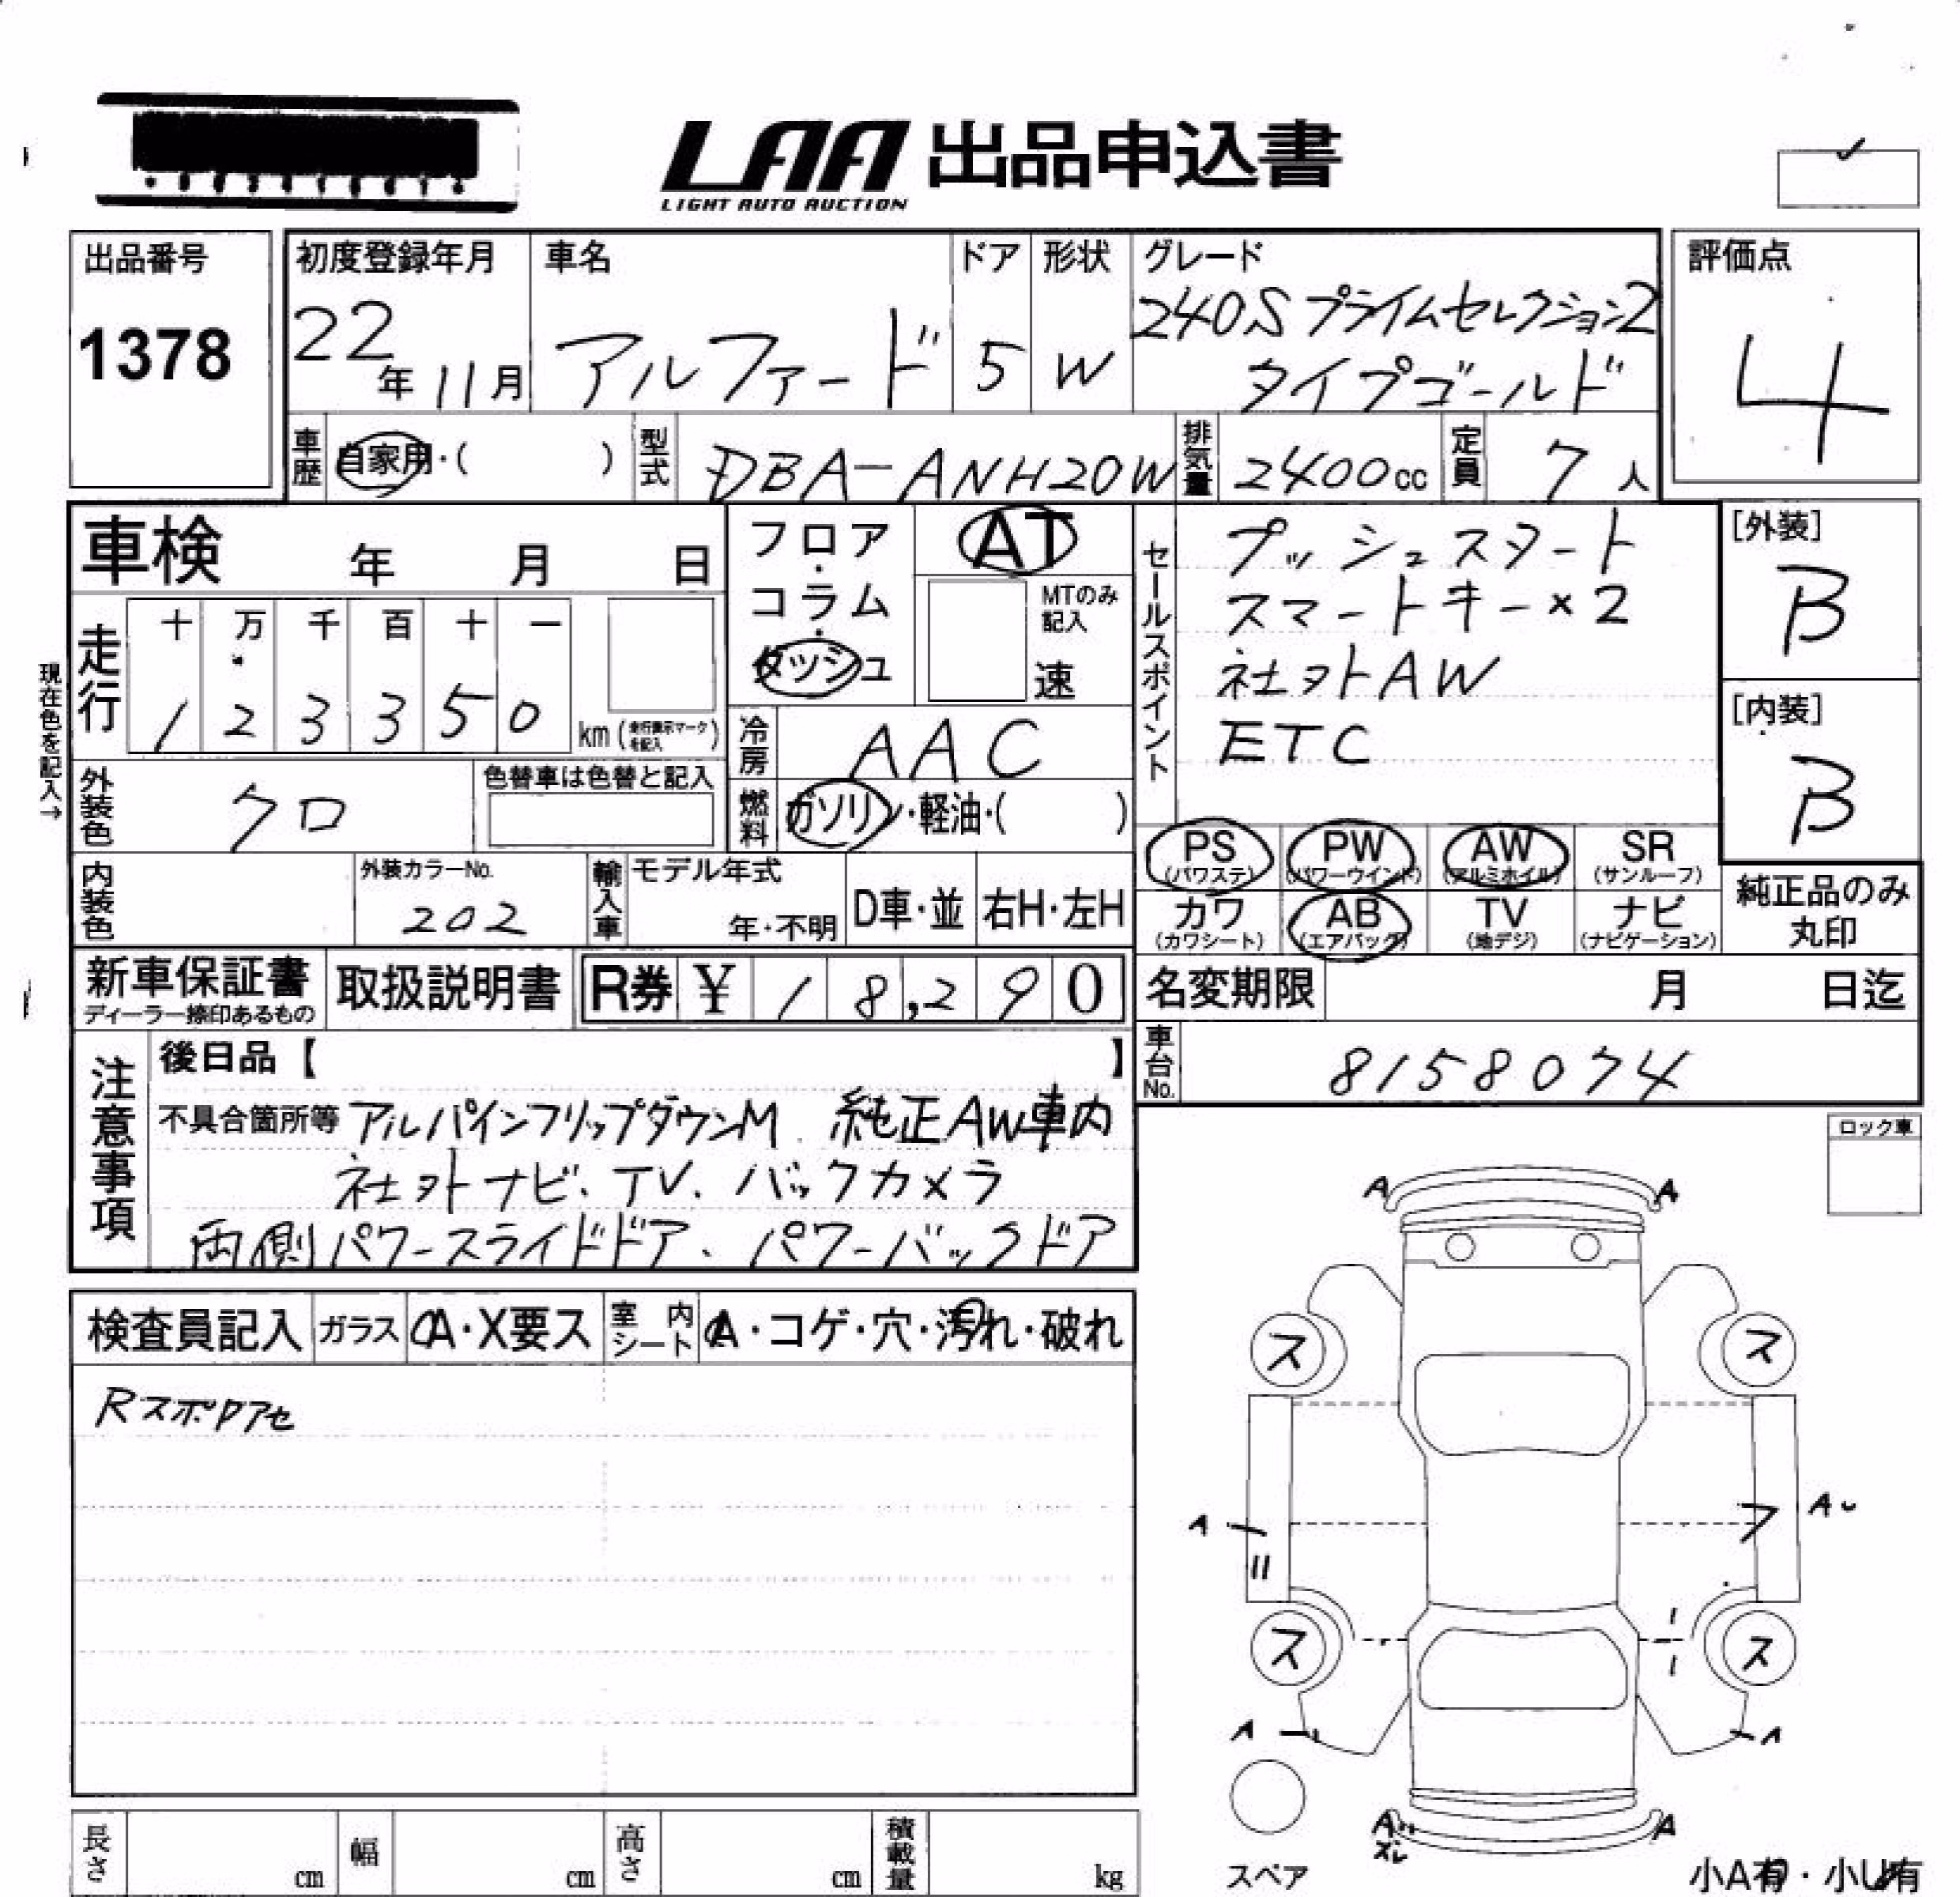 LAA 出品申込書
LIGHT AUTO AUCTION
出品番号
1378
初度登録年月
22年11月
車名
アルファード
ドア
5
形状
W
グレード
240S プライムセレクション2
タイプゴールド
評価点
4
車歴 自家用・( )
型式 DBA-ANH20W
排気量 2400cc
定員 7人
車検 年 月 日
フロア・コラム・ダッシュ
AT
MTのみ記入
速
セールスポイント
プッシュスタート
スマートキー×2
社外AW
ETC
[外装]
B
[内装]
B
現在色を記入→
走行
十 万 千 百 十 一
1 2 3 3 5 0 km (走行表示マークを記入)
冷房 AAC
外装色 クロ
色替車は色替と記入
燃料 ガソリン・軽油・( )
PS (パワステ)
PW (パワーウインド)
AW (アルミホイル)
SR (サンルーフ)
カワ (カワシート)
AB (エアバック)
TV (地デジ)
ナビ (ナビゲーション)
純正品のみ
丸印
内装色
外装カラーNo.
202
輸入車
モデル年式
年・不明
D車・並
右H・左H
新車保証書
ディーラー捺印あるもの
取扱説明書
R券 ¥ 18,290
名変期限 月 日迄
車台No. 8158074
注意事項
後日品【 】
不具合箇所等 アルパインフリップダウンM 純正AW車内
社外ナビ、TV、バックカメラ
両側パワースライドドア、パワーバックドア
ロック車
検査員記入 ガラス A・X要ス 室内シート A・コゲ・穴・汚れ・破れ
A A
ス ス
A A
ス ス
A A
A A
スペア
小A有・小U有
長さ cm 幅 cm 高さ cm 積載量 kg